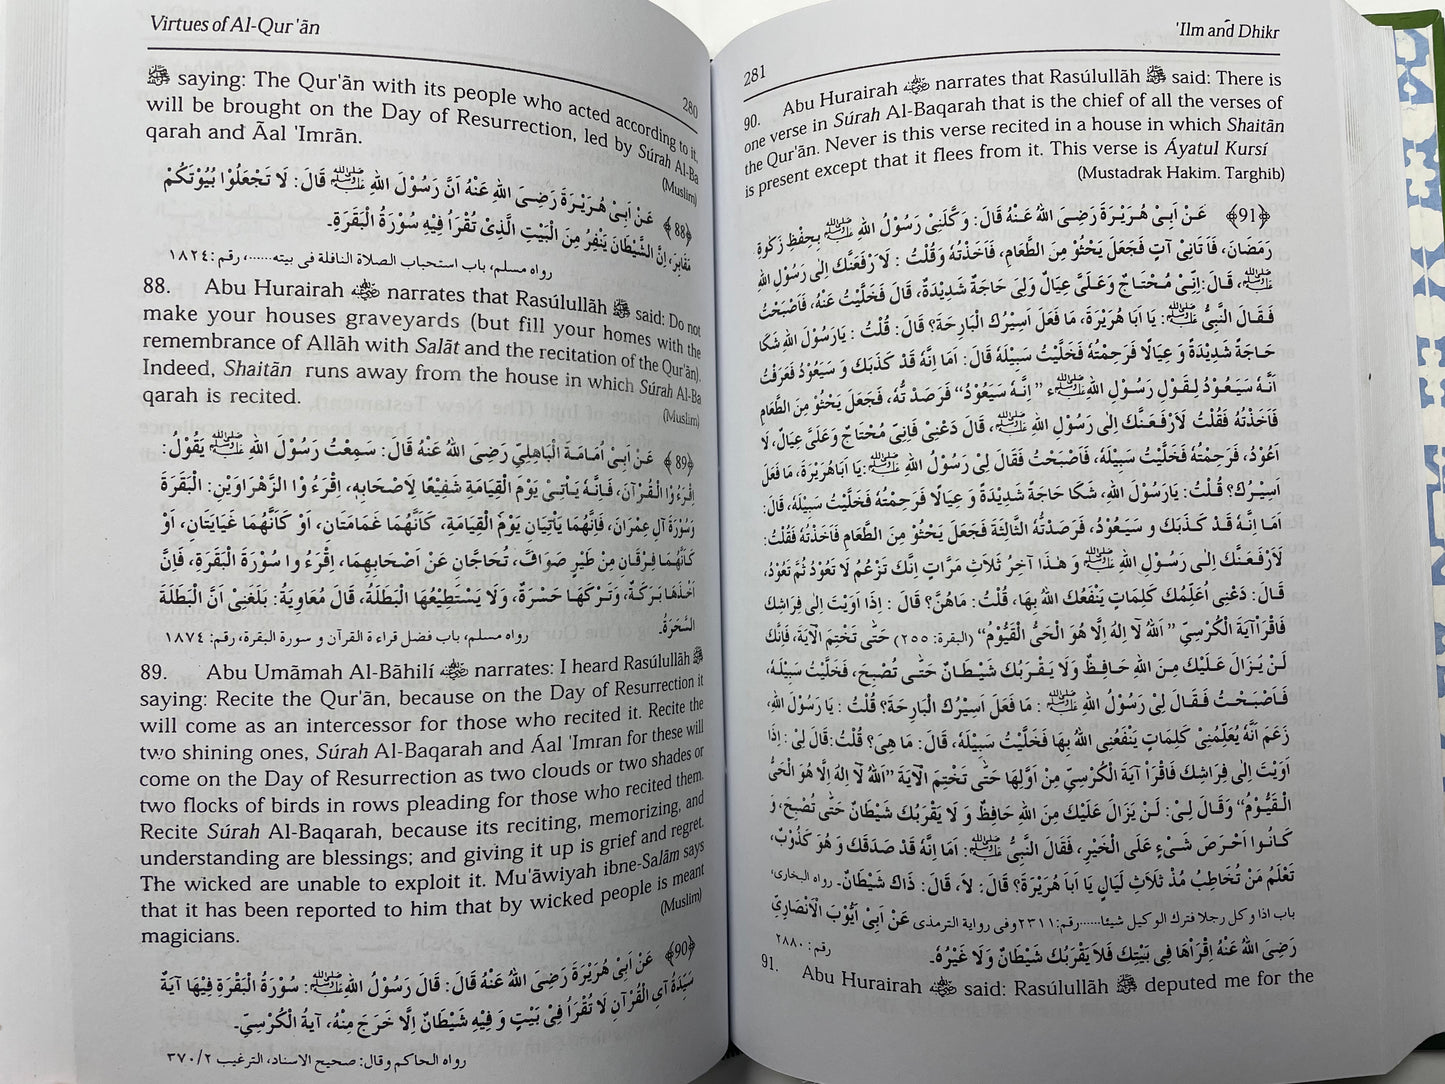 Virtues of Al-Qur'ān
280
ﷺ saying: The Qur'ān with its people who acted according to it,
will be brought on the Day of Resurrection, led by Súrah Al-Ba
qarah and Āal 'Imrān.
(Muslim)
﴿88﴾ عَنْ اَبِىْ هُرَيْرَةَ رَضِىَ اللهُ عَنْهُ اَنَّ رَسُوْلَ اللهِ ﷺ قَالَ: لَا تَجْعَلُوْا بُيُوْتَكُمْ
مَقَابِرَ، اِنَّ الشَّيْطَانَ يَنْفِرُ مِنَ الْبَيْتِ الَّذِىْ تُقْرَاُ فِيْهِ سُوْرَةُ الْبَقَرَةِ۔
رواه مسلم، باب استحباب الصلاة النافلة فى بيته......، رقم: ١٨٢٤
88. Abu Hurairah ؓ narrates that Rasúlullāh ﷺ said: Do not
make your houses graveyards (but fill your homes with the
remembrance of Allāh with Salāt and the recitation of the Qur'ān).
Indeed, Shaitān runs away from the house in which Súrah Al-Ba
qarah is recited.
(Muslim)
﴿89﴾ عَنْ اَبِىْ اُمَامَةَ الْبَاهِلِيِ رَضِىَ اللهُ عَنْهُ قَالَ: سَمِعْتُ رَسُوْلَ اللهِ ﷺ يَقُوْلُ:
اِقْرَءُ وْا الْقُرْآنَ، فَاِنَّهُ يَاْتِىْ يَوْمَ الْقِيَامَةِ شَفِيْعًا لِاَصْحَابِهِ، اِقْرَءُ وْا الزَّهْرَاوَيْنِ: الْبَقَرَةَ
وَسُوْرَةَ آلِ عِمْرَانَ، فَاِنَّهُمَا يَاْتِيَانِ يَوْمَ الْقِيَامَةِ، كَاَنَّهُمَا غَمَامَتَانِ، اَوْ كَاَنَّهُمَا غَيَايَتَانِ، اَوْ
كَاَنَّهُمَا فِرْقَانِ مِنْ طَيْرٍ صَوَافَّ، تُحَاجَّانِ عَنْ اَصْحَابِهِمَا، اِقْرَءُ وا سُوْرَةَ الْبَقَرَةِ، فَاِنَّ
اَخْذَهَا بَرَكَةٌ، وَتَرْكَهَا حَسْرَةٌ، وَلَا يَسْتَطِيْعُهَا الْبَطَلَةُ، قَالَ مُعَاوِيَةُ: بَلَغَنِىْ اَنَّ الْبَطَلَةَ
السَّحَرَةُ۔
رواه مسلم، باب فضل قراءة القرآن و سورة البقرة، رقم: ١٨٧٤
89. Abu Umāmah Al-Bāhilí ؓ narrates: I heard Rasúlullāh ﷺ
saying: Recite the Qur'ān, because on the Day of Resurrection it
will come as an intercessor for those who recited it. Recite the
two shining ones, Súrah Al-Baqarah and Áal 'Imran for these will
come on the Day of Resurrection as two clouds or two shades or
two flocks of birds in rows pleading for those who recited them.
Recite Súrah Al-Baqarah, because its reciting, memorizing, and
understanding are blessings; and giving it up is grief and regret.
The wicked are unable to exploit it. Mu'āwiyah ibne-Salām says
that it has been reported to him that by wicked people is meant
magicians.
(Muslim)
﴿90﴾ عَنْ اَبِىْ هُرَيْرَةَ رَضِىَ اللهُ عَنْهُ قَالَ: قَالَ رَسُوْلُ اللهِ ﷺ: سُوْرَةُ الْبَقَرَةِ فِيْهَا آيَةٌ
سَيِّدَةُ آىِ الْقُرْآنِ لَا تُقْرَاُ فِىْ بَيْتٍ وَ فِيْهِ شَيْطَانٌ اِلَّا خَرَجَ مِنْهُ، آيَةُ الْكُرْسِيِّ۔
رواه الحاكم وقال: صحيح الاسناد، الترغيب ٢/٣٧٠
'Ilm and Dhikr
281
90. Abu Hurairah ؓ narrates that Rasúlullāh ﷺ said: There is
one verse in Súrah Al-Baqarah that is the chief of all the verses of
the Qur'ān. Never is this verse recited in a house in which Shaitān
is present except that it flees from it. This verse is Áyatul Kursí
(Mustadrak Hakim. Targhib)
﴿91﴾ عَنْ اَبِىْ هُرَيْرَةَ رَضِىَ اللهُ عَنْهُ قَالَ: وَكَّلَنِىْ رَسُوْلُ اللهِ ﷺ بِحِفْظِ زَكٰوةِ
رَمَضَانَ، فَاَتَانِىْ آتٍ فَجَعَلَ يَحْثُوْ مِنَ الطَّعَامِ، فَاَخَذْتُهُ وَقُلْتُ: لَاَرْفَعَنَّكَ اِلٰى رَسُوْلِ اللهِ
ﷺ، قَالَ: اِنِّىْ مُحْتَاجٌ وَعَلَىَّ عِيَالٌ وَلِىَ حَاجَةٌ شَدِيْدَةٌ، قَالَ فَخَلَّيْتُ عَنْهُ، فَاَصْبَحْتُ
فَقَالَ النَّبِىُّ ﷺ: يَا اَبَا هُرَيْرَةَ، مَا فَعَلَ اَسِيْرُكَ الْبَارِحَةَ؟ قَالَ: قُلْتُ: يَارَسُوْلَ اللهِ شَكَا
حَاجَةً شَدِيْدَةً وَ عِيَالًا فَرَحِمْتُهُ فَخَلَّيْتُ سَبِيْلَهُ قَالَ: اَمَا اِنَّهُ قَدْ كَذَبَكَ وَ سَيَعُوْدُ فَعَرَفْتُ
اَنَّهُ سَيَعُوْدُ لِقَوْلِ رَسُوْلِ اللهِ ﷺ "اِنَّهُ سَيَعُوْدُ" فَرَصَدْ تُهُ، فَجَعَلَ يَحْثُوْ مِنَ الطَّعَامِ
فَاَخَذْتُهُ فَقُلْتُ لَاَرْفَعَنَّكَ اِلٰى رَسُوْلِ اللهِ ﷺ، قَالَ دَعْنِىْ فَاِنِّىْ مُحْتَاجٌ وَعَلَىَّ عِيَالٌ، لَا
اَعُوْدُ، فَرَحِمْتُهُ فَخَلَّيْتُ سَبِيْلَهُ، فَاَصْبَحْتُ فَقَالَ لِىْ رَسُوْلُ اللهِ ﷺ: يَا اَبَاهُرَيْرَةَ، مَا فَعَلَ
اَسِيْرُكَ؟ قُلْتُ: يَارَسُوْلَ اللهِ، شَكَا حَاجَةً شَدِيْدَةً وَ عِيَالًا فَرَحِمْتُهُ فَخَلَّيْتُ سَبِيْلَهُ، قَالَ:
اَمَا اِنَّهُ قَدْ كَذَبَكَ وَ سَيَعُوْدُ، فَرَصَدْتُهُ الثَّالِثَةَ فَجَعَلَ يَحْثُوْ مِنَ الطَّعَامِ فَاَخَذْتُهُ فَقُلْتُ:
لَاَرْفَعَنَّكَ اِلٰى رَسُوْلِ اللهِ ﷺ وَ هٰذَا آخِرُ ثَلَاثِ مَرَّاتٍ اِنَّكَ تَزْعُمُ لَا تَعُوْدُ ثُمَّ تَعُوْدُ،
قَالَ: دَعْنِىْ اُعَلِّمْكَ كَلِمَاتٍ يَنْفَعُكَ اللهُ بِهَا، قُلْتُ: مَاهُنَّ؟ قَالَ: اِذَا اَوَيْتَ اِلٰى فِرَاشِكَ
فَاقْرَاْ آيَةَ الْكُرْسِيِّ "اَللهُ لَا اِلٰهَ اِلَّا هُوَ الْحَىُّ الْقَيُّوْمُ" (البقرة: ٢٥٥) حَتّٰى تَخْتِمَ الْآيَةَ، فَاِنَّكَ
لَنْ يَزَالَ عَلَيْكَ مِنَ اللهِ حَافِظٌ وَلَا يَقْرَبُكَ شَيْطَانٌ حَتّٰى تُصْبِحَ، فَخَلَّيْتُ سَبِيْلَهُ،
فَاَصْبَحْتُ فَقَالَ لِىْ رَسُوْلُ اللهِ ﷺ: مَا فَعَلَ اَسِيْرُكَ الْبَارِحَةَ؟ قُلْتُ: يَارَسُوْلَ اللهِ،
زَعَمَ اَنَّهُ يُعَلِّمُنِىْ كَلِمَاتٍ يَنْفَعُنِى اللهُ بِهَا فَخَلَّيْتُ سَبِيْلَهُ، قَالَ: مَا هِىَ؟ قُلْتُ: قَالَ لِىْ: اِذَا
اَوَيْتَ اِلٰى فِرَاشِكَ فَاقْرَاْ آيَةَ الْكُرْسِيِّ مِنْ اَوَّلِهَا حَتّٰى تَخْتِمَ الْآيَةَ "اَللهُ لَا اِلٰهَ اِلَّا هُوَ الْحَىُّ
الْقَيُّوْمُ" وَقَالَ لِىْ: لَنْ يَزَالَ عَلَيْكَ مِنَ اللهِ حَافِظٌ وَ لَا يَقْرَبُكَ شَيْطَانٌ حَتّٰى تُصْبِحَ، وَ
كَانُوا اَحْرَصَ شَىْءٍ عَلَى الْخَيْرِ، فَقَالَ النَّبِىُّ ﷺ: اَمَا اِنَّهُ قَدْ صَدَقَكَ وَ هُوَ كَذُوْبٌ،
تَعْلَمُ مَنْ تُخَاطِبُ مُذْ ثَلَاثِ لَيَالٍ يَا اَبَا هُرَيْرَةَ؟ قَالَ: لَا، قَالَ: ذَاكَ شَيْطَانٌ۔ رواه البخارى،
باب اذا وكل رجلا فترك الوكيل شيئا......رقم: ٢٣١١وفى رواية الترمذى عَنْ اَبِىْ اَيُّوْبَ الْاَنْصَارِيِّ
رَضِىَ اللهُ عَنْهُ اِقْرَاْهَا فِى بَيْتِكَ فَلَا يَقْرَبُكَ شَيْطَانٌ وَلَا غَيْرُهُ۔
رقم: ٢٨٨٠
91. Abu Hurairah ؓ said: Rasúlullāh ﷺ deputed me for the